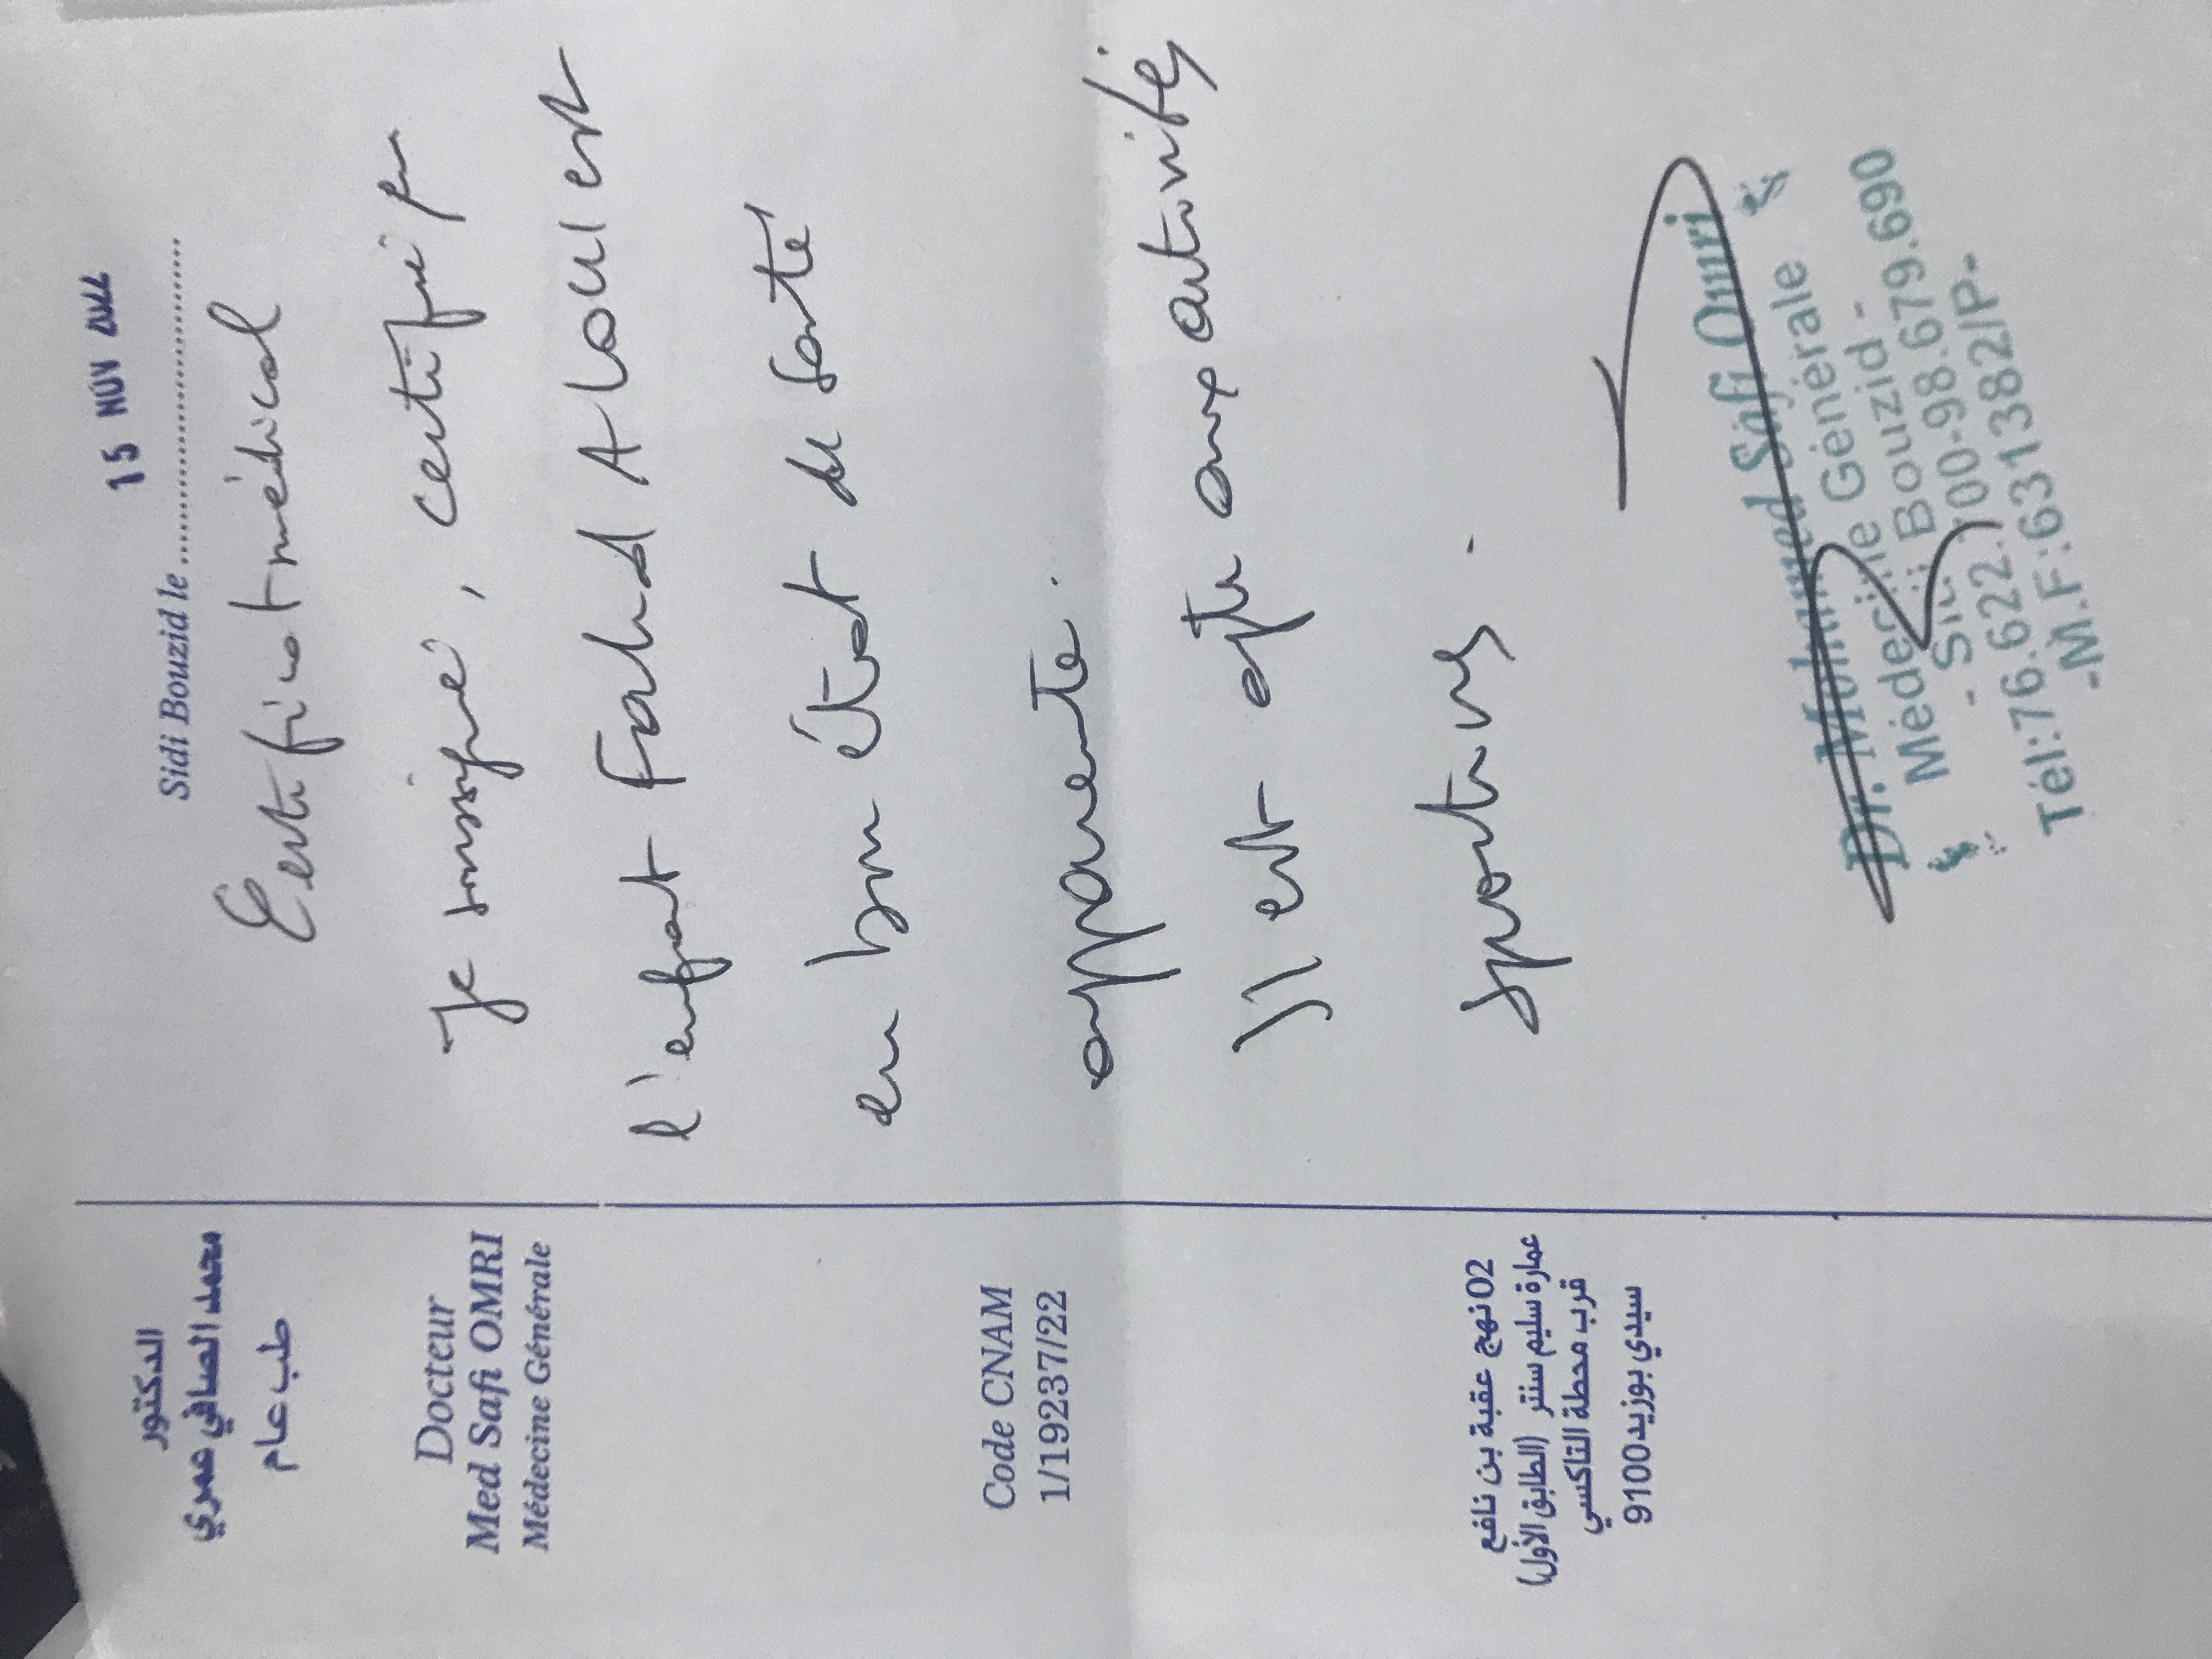 الدكتور
محمد الصافي عمري
طب عام
Docteur
Med Safi OMRI
Médecine Générale
Code CNAM
1/19237/22
02 نهج عقبة بن نافع
عمارة سليم سنتر (الطابق الأول)
قرب محطة التاكسي
سيدي بوزيد 9100
15 NOV
Sidi Bouzid le
Certificat médical
Je soussigné, certifie
l'enfant Fahed ALOUI est
en bon état de santé
apparente.
Il est apte aux activités
sportives.
Dr. Mohamed Safi Omri
Médecine Générale
- Sidi Bouzid -
Tél:76.622.100-98.679.690
-M.F:631382/P-